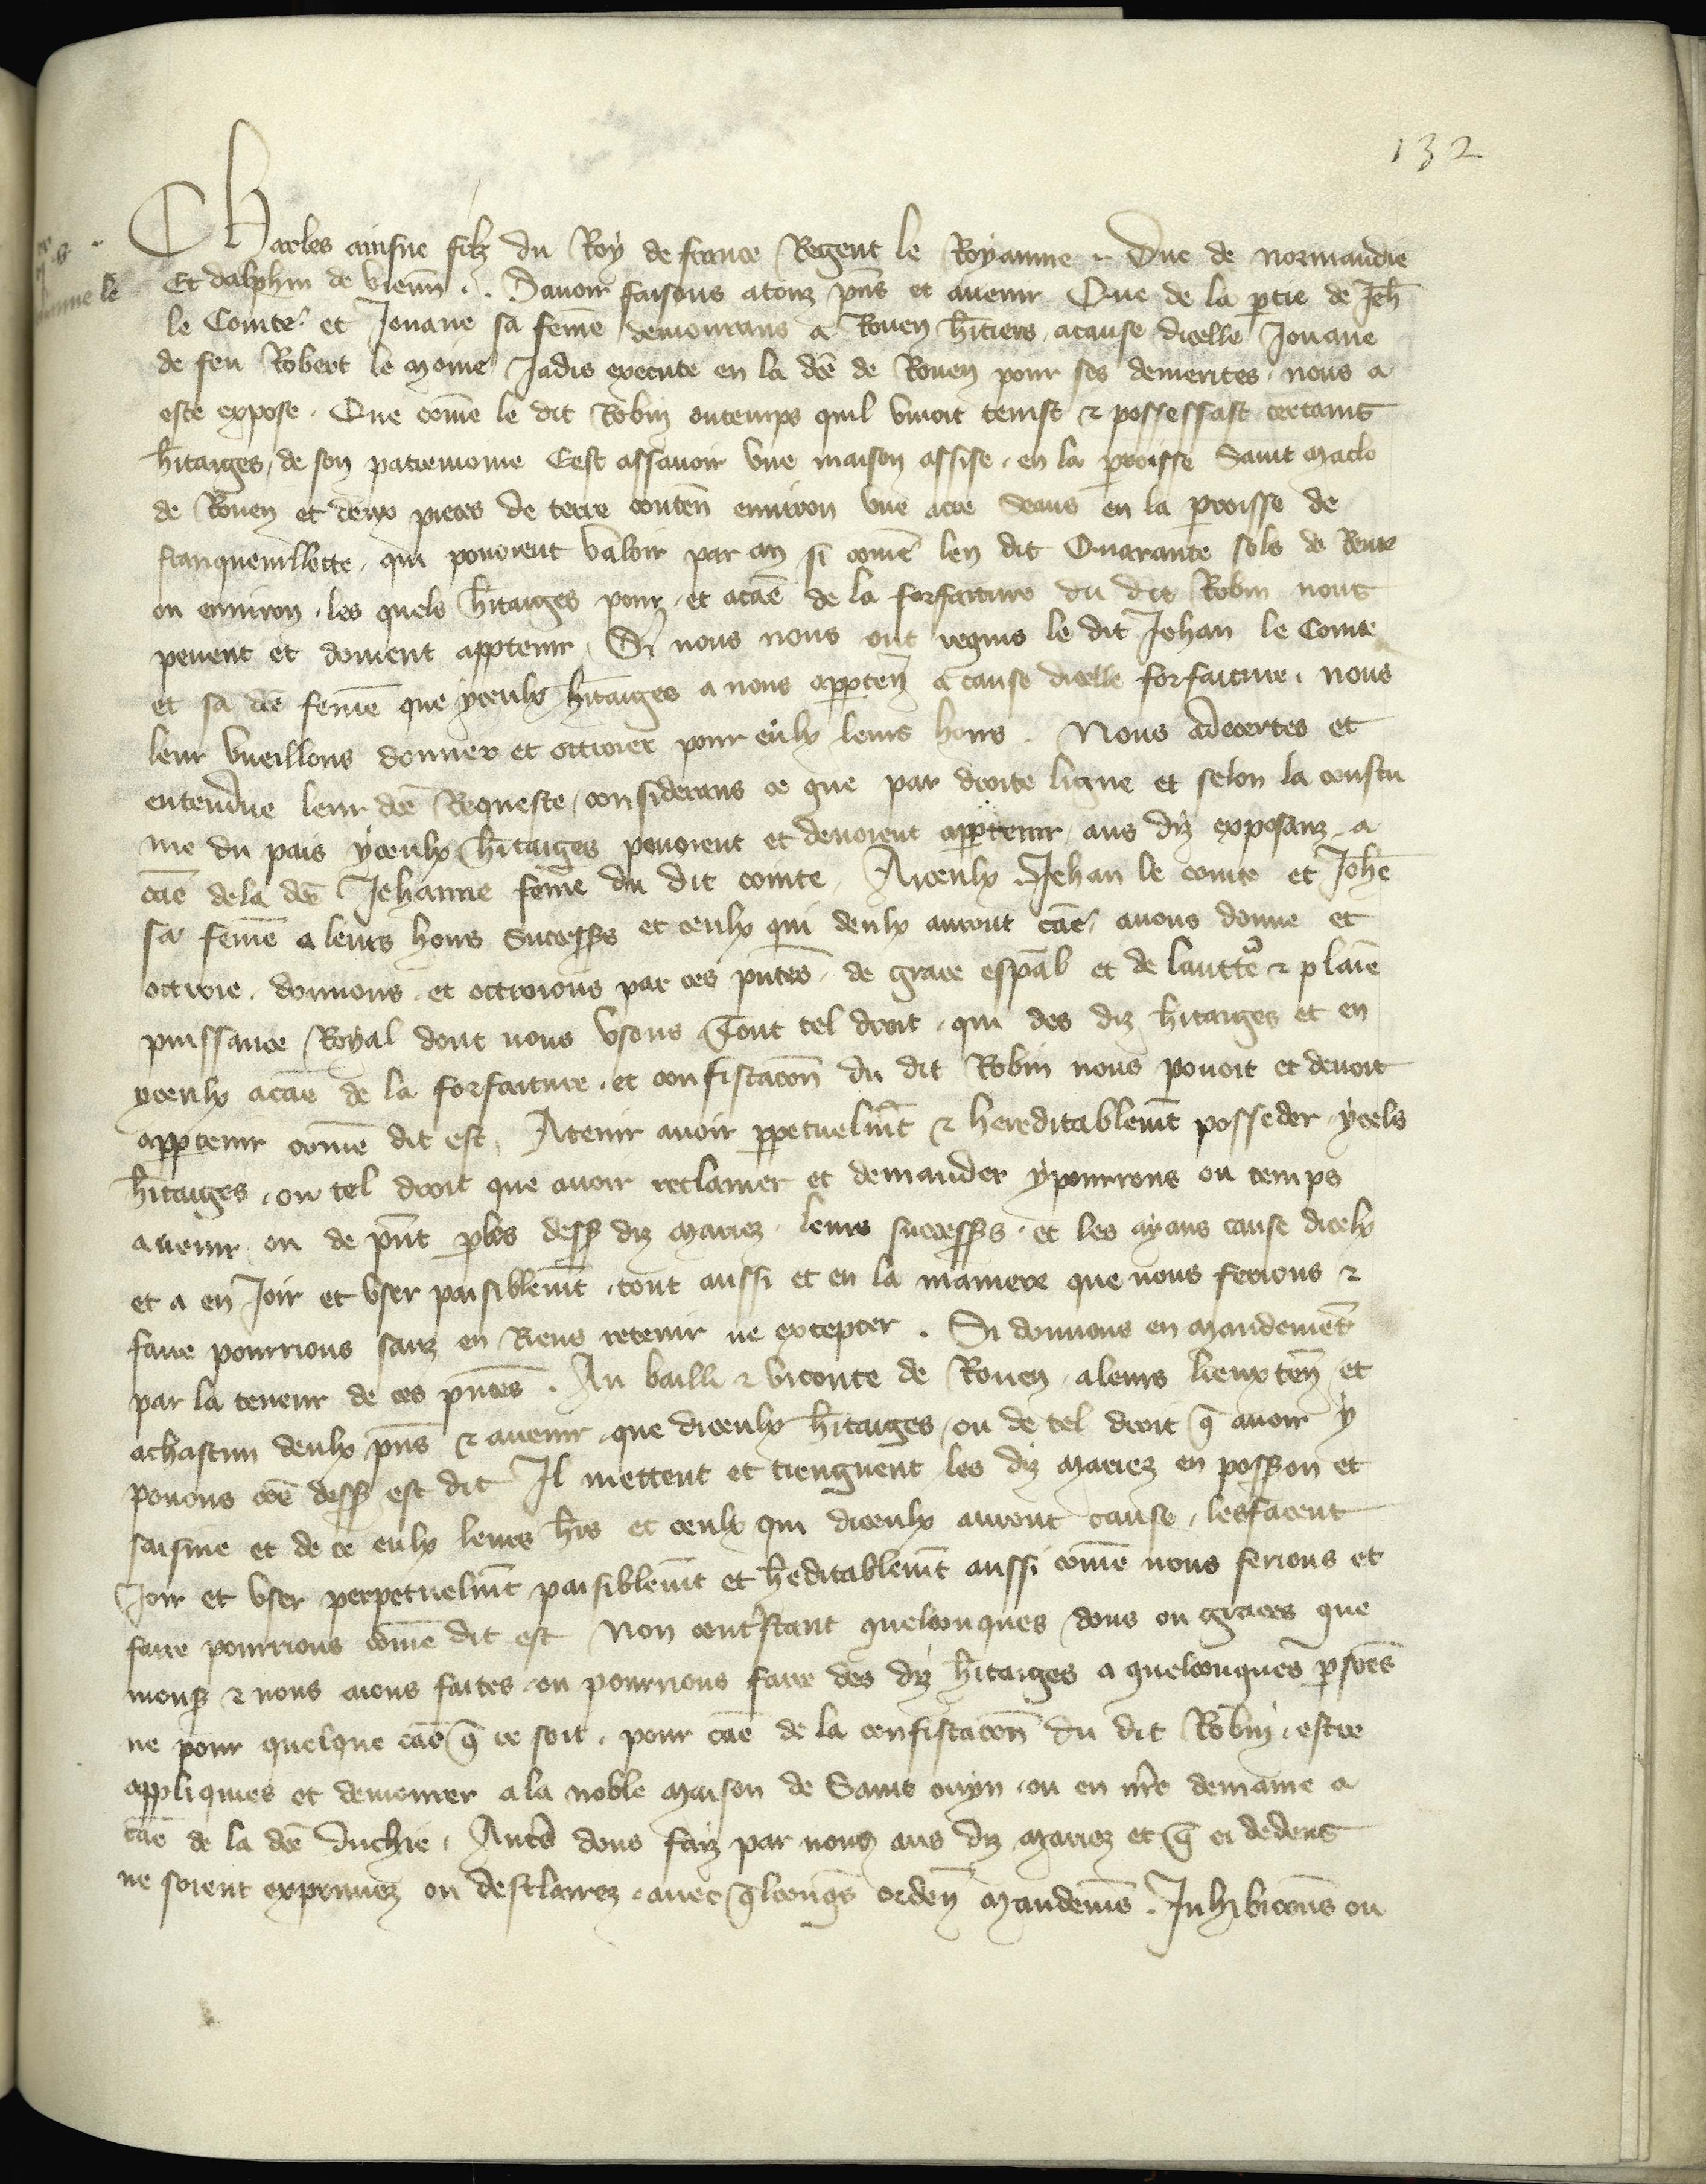 132
Charles ainsne filz du Roy de france Regent le Royaume. Duc de normandie
Et dalphin de vienn̄. Savoir faisons a touz pn̄s et avenir Que de la ptie de Jeh̄
le Comte. et Jouane sa fem̄e demourans a Rouen h̄itiers, acause dicelle Jouane
de feu Robert le moine Jadis execute en la dc̄e de Rouen pour ses demerites, nous a
este expose. Que com̄e le dit Robin ou temps quil vivoit tenist ⁊ possessast certains
h̄itaiges, de son patremoine Cest assavoir une maison assise, en la proisse Saint maclo
de Rouen et deux pieces de terre conten̄ environ une acre seans en la proisse de
franquevillette, qui povoient valoir par an si com̄e len dit Quarante sols de Rente
ou environ, les quels h̄itaiges pour, et acāe de la forfaiture du dit Robin nous
pevent et doivent apptenir, Si nous nous ont requis le dit Jehan le Comte
et sa dc̄e fem̄e que yceulx h̄itaiges a nous appten̄ a cause dicelle forfaiture, nous
leur vueillons donner et ottroier pour eulx leurs hoirs. Nous adecertes et
entendue leur dc̄e Requeste, considerans ce que par droite ligne et selon la coustu
me du pais yceulx h̄itaiges povoient et devoient apptenir, aus diz exposanz a
cāe dela dc̄e Jehanne fem̄e du dit comte, Aiceulx Jehan le comte et Joh̄e
sa fem̄e a leurs hoirs Successrs et ceulx qui deulx auront cāe, avons donne et
ottroie, donnons, et ottroions par ces pn̄tes, de grace espāl et de lautte ⁊ plaīe
puissance Royal dont nous usons Tout tel droit, qui des diz h̄itaiges et en
yceulx acāe de la forfaiture, et confiscacōn du dit Robin nous povoit et devoit
apptenir com̄e dit est, Atenir avoir ppetuelm̄t ⁊ hereditablem̄t posseder, ycels
h̄itaiges, ou tel droit que avoir reclamer et demander y pourrons ou temps
avenir, ou de pn̄t p les dess diz mariez, leurs successrs, et les ayans cause dicelx
et a en Joir et user paisiblem̄t, tout aussi et en la maniere que nous ferions ⁊
faire pourrions sanz en Riens retenir ne excepter. Si donnons en mandement
par la teneur de ces pn̄tes. Au bailli ⁊ viconte de Rouen, aleurs lieux ten̄ et
achascun deulx pn̄s ⁊ avenir, que diceulx h̄itaiges, ou de tel droit q̄ avoir y
povons cōe dess est dit Il mettent et tienguent les diz mariez en possion et
saisine et de ce eulx leurs h̄rs et ceulx qui diceulx auront cause, les facent
Joir et user perpetuelm̄t paisiblem̄t et h̄editablem̄t aussi com̄e nous ferions et
faire pourrions com̄e dit est Non contrstant quelconques dons ou graces que
mons ⁊ nous aions faites, ou pourrions faire des diz h̄itaiges a quelconques psōes
ne pour quelque cāe q̄ ce soit, pour cāe de la confiscacōn du dit Robin, estre
appliquies et demourer a la noble maison de Saint ouyn, ou en nr̄e demaine a
cāe de la dc̄e duchie, Autrs dons faiz par nous aus diz mariez et q̄ ci dedens
ne soient exprimez ou desclairez, avec q̄lconqs orden̄ mandemens. Inhibicōns ou